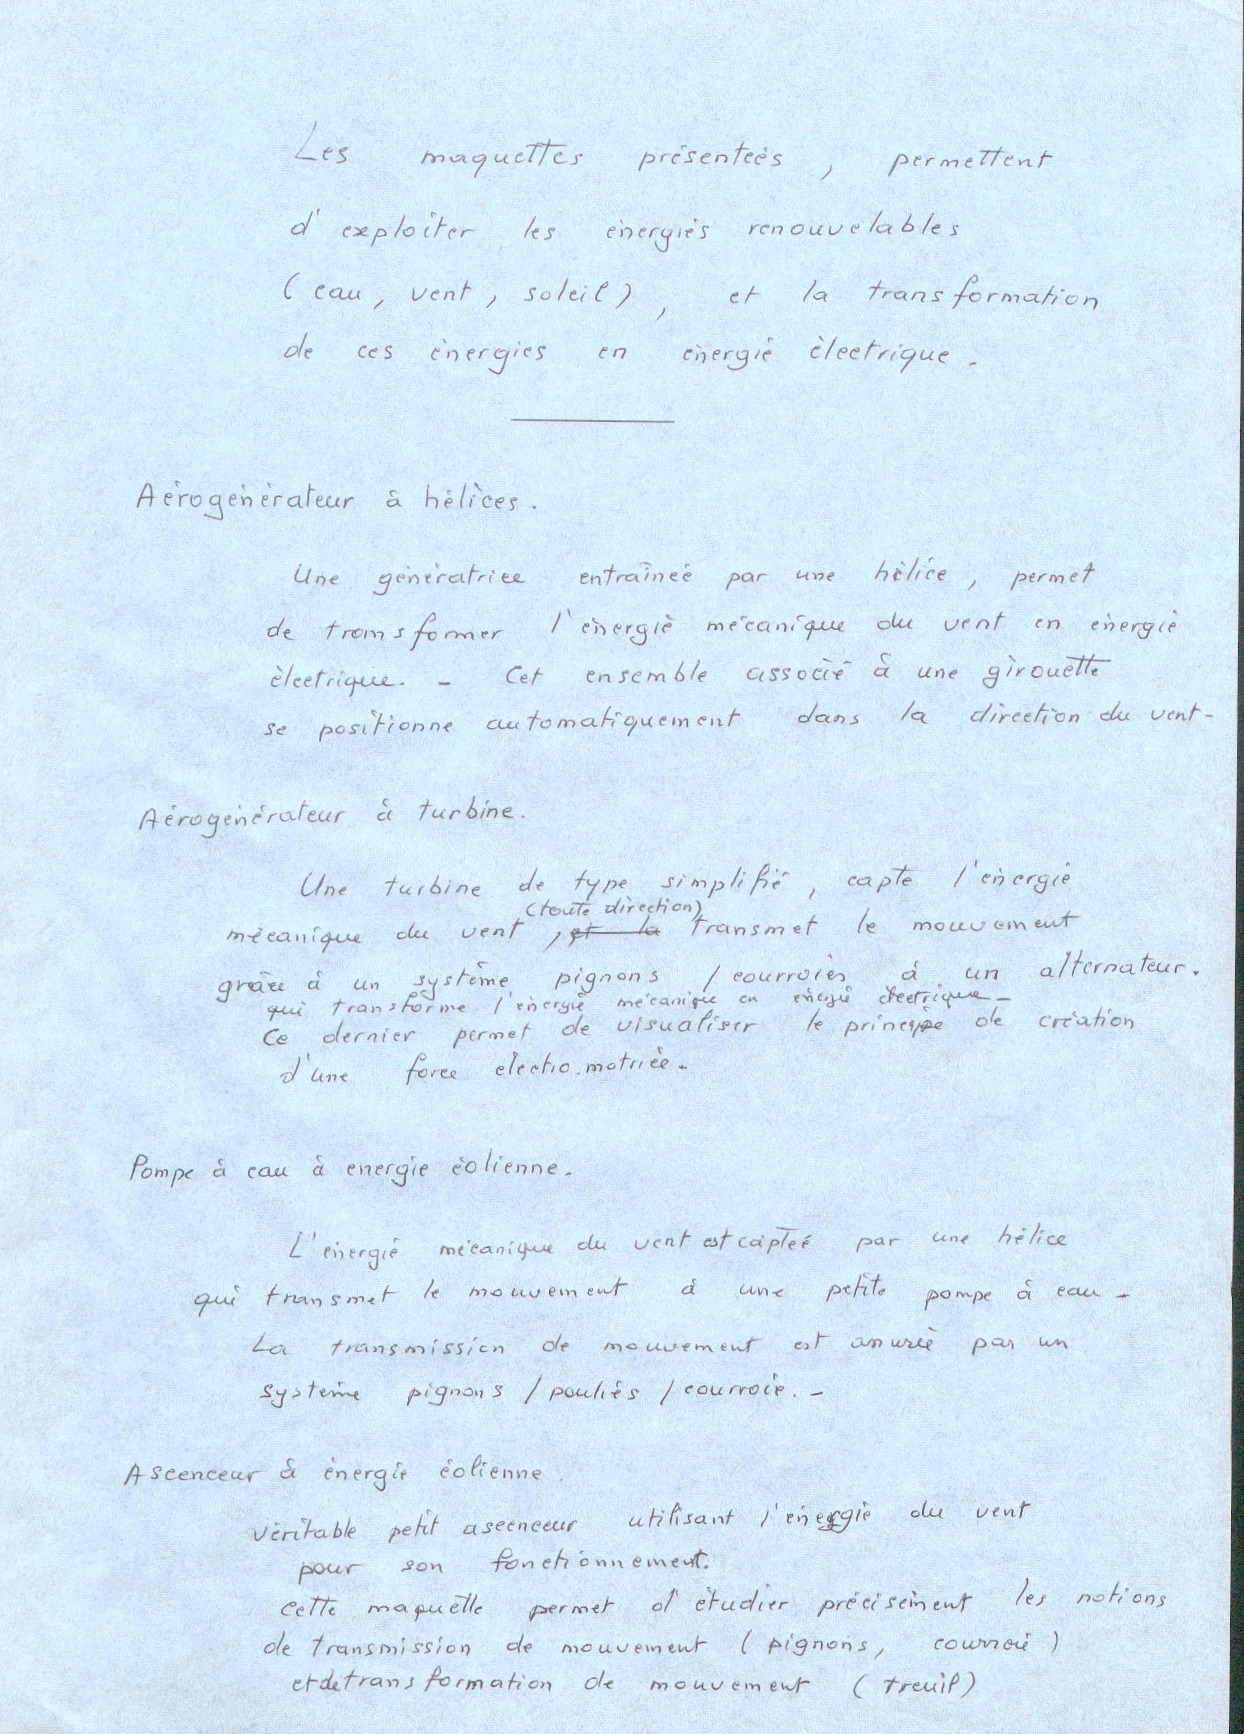 Les maquettes présentées, permettent
d'exploiter les énergies renouvelables
(eau, vent, soleil), et la transformation
de ces énergies en énergie électrique.
Aérogénérateur à hélices.
Une génératrice entraînée par une hélice, permet
de transformer l'énergie mécanique du vent en énergie
électrique. - Cet ensemble associé à une girouette
se positionne automatiquement dans la direction du vent-
Aérogénérateur à turbine.
Une turbine de type simplifié, capte l'énergie
(toute direction)
mécanique du vent, et la transmet le mouvement
grâce à un système pignons / courroies à un alternateur.
qui transforme l'énergie mécanique en énergie électrique -
Ce dernier permet de visualiser le principe de création
d'une force électro.motrice.
Pompe à eau à energie éolienne.
L'énergie mécanique du vent est captée par une hélice
qui transmet le mouvement à une petite pompe à eau -
La transmission de mouvement est assurée par un
système pignons / poulies / courroie. -
Ascenceur à énergie éolienne.
véritable petit ascenceur utilisant l'énergie du vent
pour son fonctionnement.
cette maquette permet d'étudier précisément les notions
de transmission de mouvement (pignons, courroie)
et de transformation de mouvement (treuil)